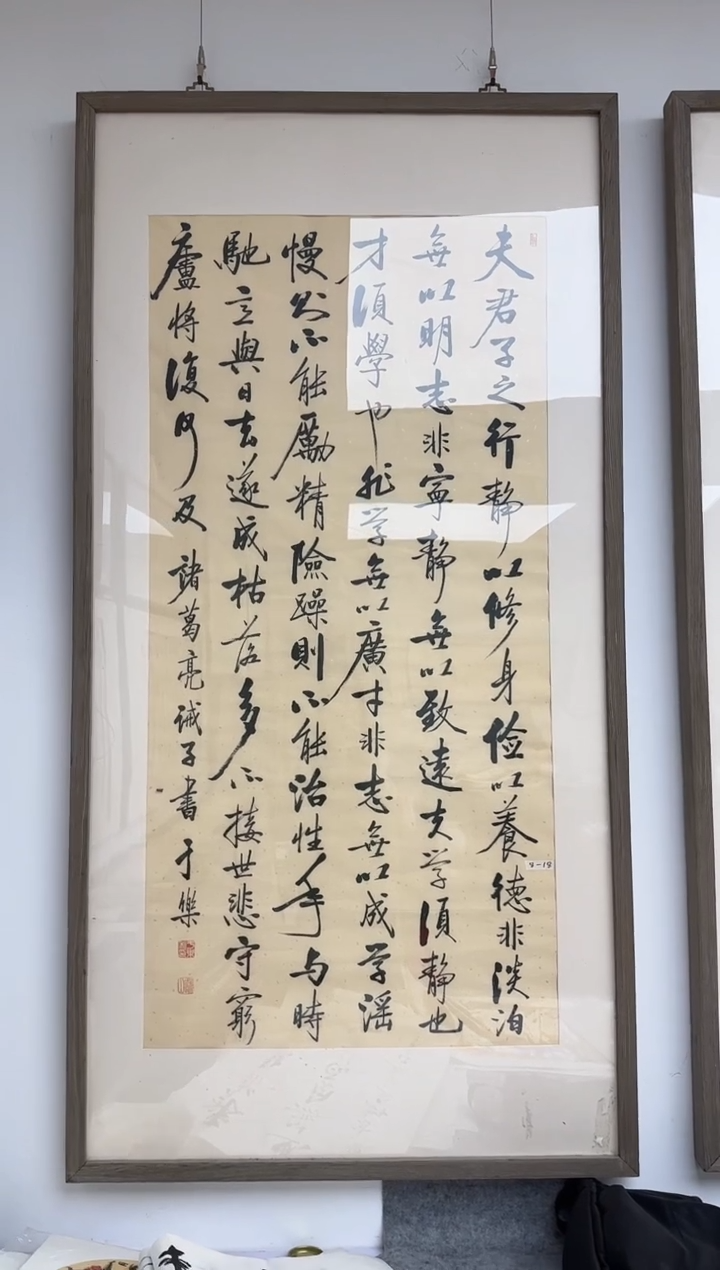 夫君子之行静以修身俭以養德非淡泊
無以明志非寧静無以致遠夫学須静也
才須學也非学無以廣才非志無以成学滛
慢則不能勵精險躁則不能治性年与時
馳意與日去遂成枯落多不接世悲守窮
廬將復何及 諸葛亮誡子書 于樂